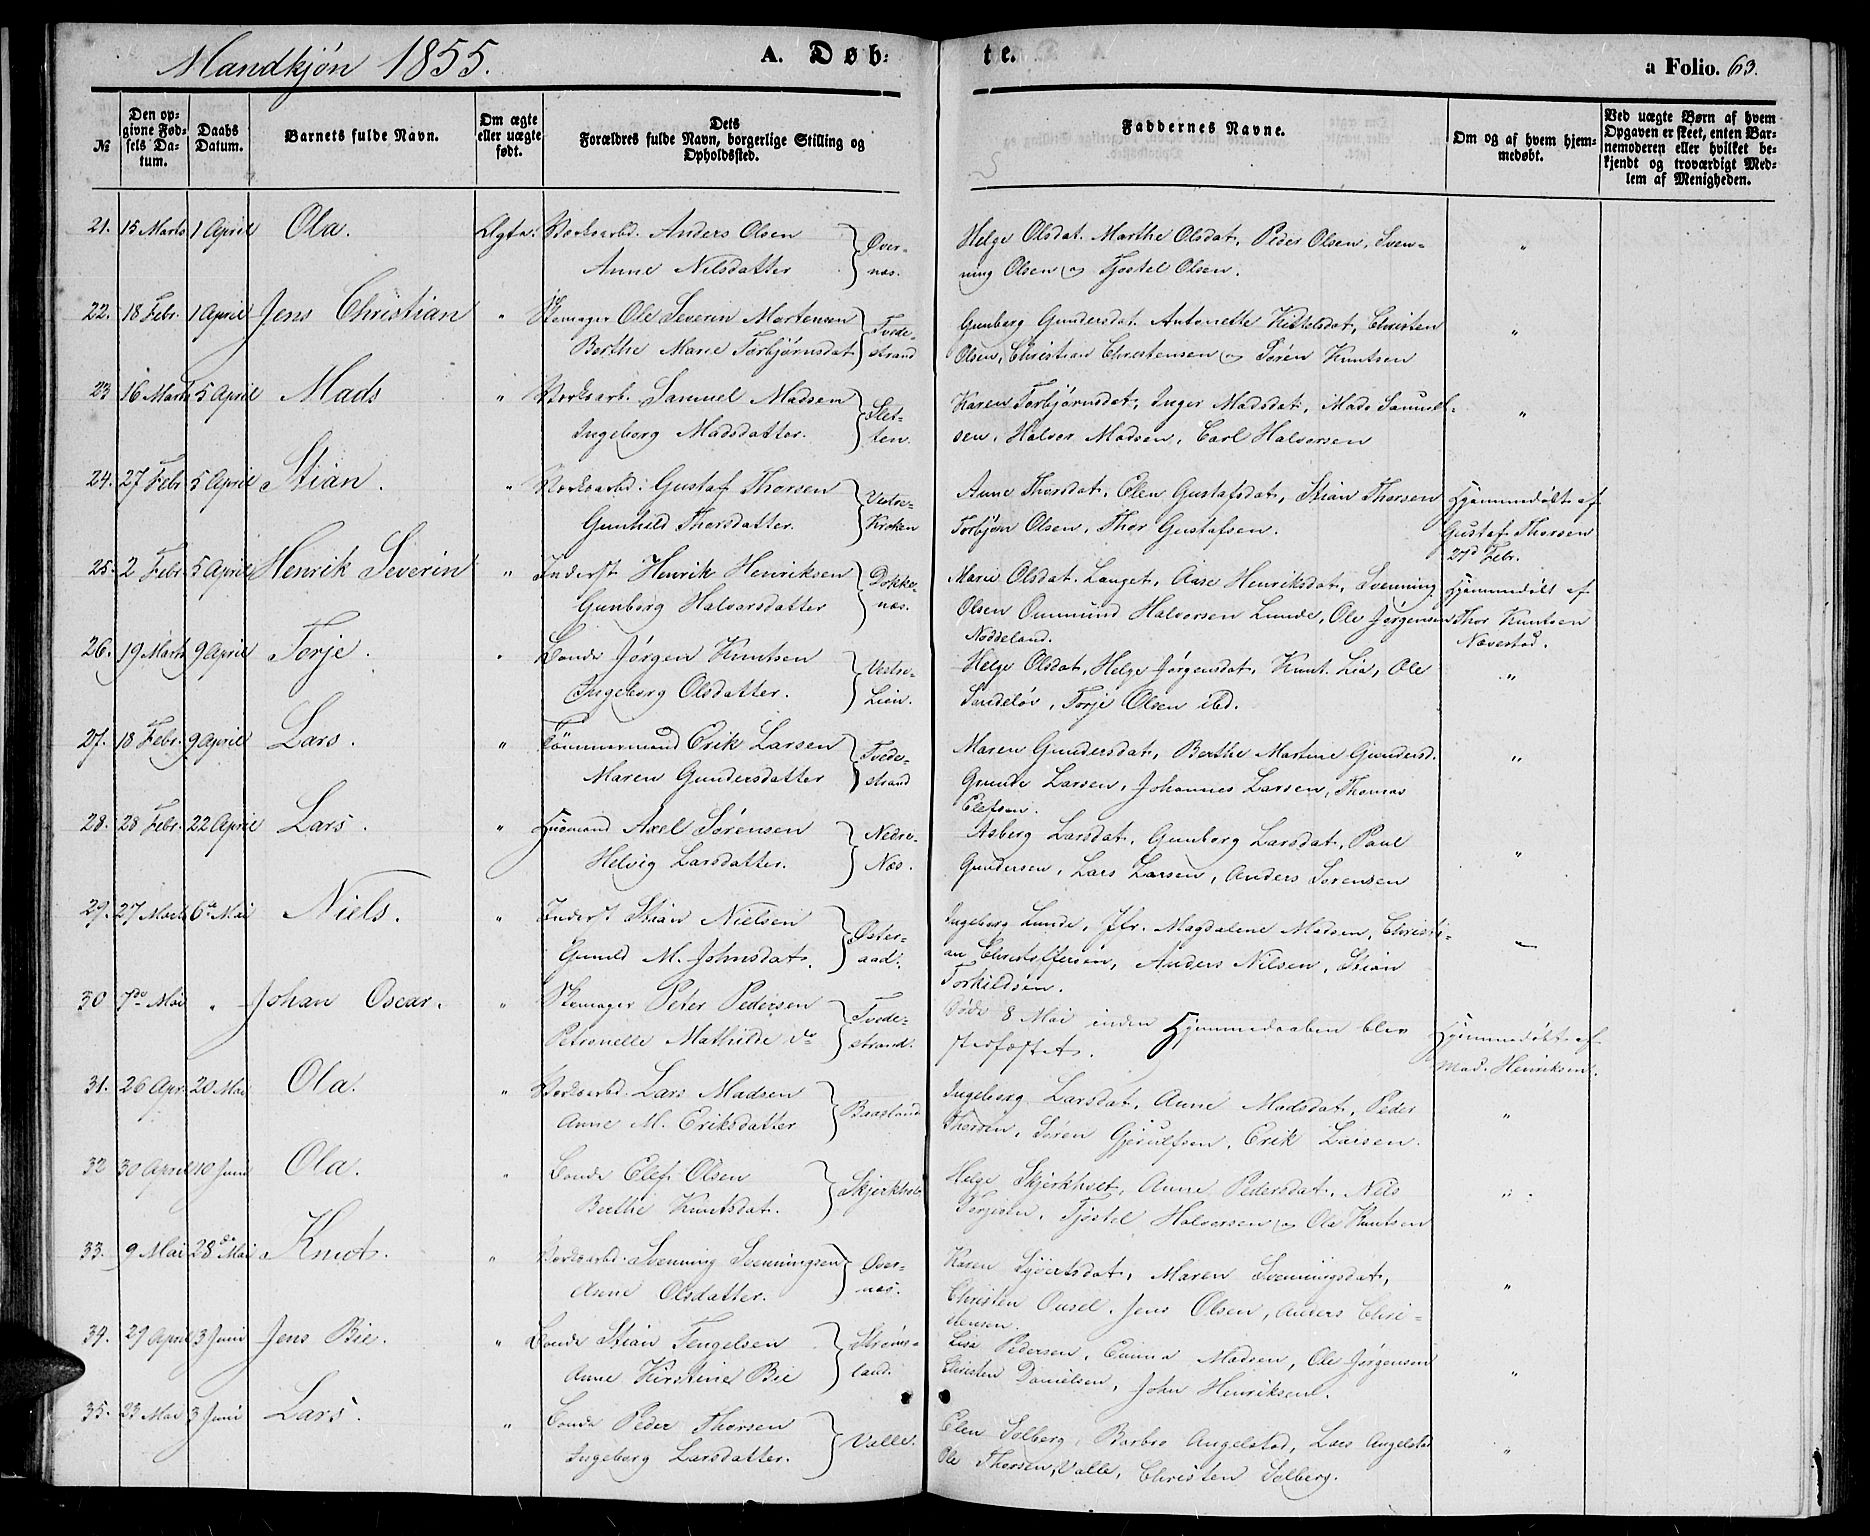 Mandkjön 1855.
A. Døb-
te.
a Folio. 63.
№
Den op-
givne Fød-
sels Da-
tum.
Daabs
Datum.
Barnets fulde Navn.
Om ægte
eller uægte
født.
Dets
Forældres fulde Navn, borgerlige Stilling og
Opholdssted.
Faddernes Navne.
Om og af hvem hjem-
medøbt.
Ved uægte Børn af hvem
Opgaven er skeet, enten Bar-
nemoderen eller hvilket be-
kjendt og troværdigt Med-
lem af Menigheden.
21. 15 Marts 1 April Ola. Ægte. Værksarbd. Anders Olsen
Anne Nilsdatter
Over-
næs.
Helge Olsdat. Marthe Olsdat, Peder Olsen, Sven-
ning Olsen og Tjostel Olsen.
"
22. 18 Febr. 1 April Jens Christian " Skomager Ole Severin Mortensen
Berthe Marie Torbjørnsdat
Tvede-
strand
Gunborg Gundersdat. Antonette Kittelsdat, Christen
Olsen, Christian Christensen og Søren Knutsen
"
23 16 Marts 5 April Mads " Værksarb. Samuel Madsen
Ingeborg Madsdatter.
Slet-
ten.
Karen Torbjørnsdat, Inger Madsdat, Mads Samuel-
sen, Halvor Madsen, Carl Halvorsen
"
24. 27 Febr 5 April Stian. " Værksarbd: Gustaf Thorsen
Gunhild Thorsdatter.
Vestre-
Kroken
Anne Thorsdat, Elen Gustafsdat, Stian Thorsen
Torbjørn Olsen, Thor Gustafsen.
Hjemmedøbt af
Gustaf Thorsen
27d Febr.
25. 2 Febr 5 April Henrik Severin " Inderst Henrik Henriksen
Gunborg Halvorsdatter
Dokke-
næs.
Marie Olsdat. Langet, Aase Henriksdat, Svenning
Olsen Ommund Halvorsen Lunde, Ole Jørgensen
Noddeland.
Hjemmedøbt af
Thor Knutsen
Navestad.
26. 19 Marts 9 April Torje. " Bonde Jørgen Knutsen
Ingeborg Olsdatter.
Vestre-
Lien.
Helge Olsdat, Helge Jørgensdat, Knut Lia, Ole
Sandeløv, Torje Olsen ibd.
"
27. 18 Febr. 9 April Lars. " Tømmermand Erik Larsen
Maren Gundersdatter
Tvede-
strand
Maren Gundersdat, Berthe Martine Gundersd.
Gunde Larsen, Johannes Larsen, Thomas
Elefsen.
"
28. 28 Febr. 22 April Lars. " Husmand Axel Sørensen
Helvig Larsdatter.
Nedre-
Næs.
Asberg Larsdat, Gunborg Larsdat, Paul
Gundersen, Lars Larsen, Anders Sørensen
"
29. 27 Marts 6te Mai Niels. " Inderst Stian Nielsen
Gunild M. Johnsdat.
Øster-
aad.
Ingeborg Lunde, Jfr. Magdalene Madsen, Christi-
an Christoffersen, Anders Nilsen, Stian
Torkildsen.
30 7de Mai " Johan Oscar. " Skomager Peter Pedersen
Petronelle Mathilde do
Tvede-
strand.
Døde 8 Mai inden Hjemmedaaben blev
stadfæstet.
Hjemmedøbt af
Mad. Henriksen.
31. 26 Apr. 20 Mai Ola. " Værksarbd. Lars Madsen
Anne M. Eriksdatter
Baasland
Ingeborg Larsdat, Anne Madsdat, Peder
Thorsen, Søren Gjerulfsen, Erik Larsen.
"
32 30 April 10 Juni Ola. " Bonde Elef Olsen
Berthe Knutsdat.
Skjerkholt
Helge Skjerkholt, Anne Pedersdat, Nils
Torjesen, Tjostel Halvorsen og Ola Knutsen
"
33. 9 Mai 28de Mai Knut. " Værksarbd. Svenning Svenningsen
Anne Olsdatter.
Over-
næs.
Karen Syvertsdat, Maren Svenningsdat,
Christen Ousel, Jens Olsen, Anders Chri-
stensen.
"
34. 29 April 3 Juni Jens Bie. " Bonde Stian Tengelsen
Anne Kirstine Bie
Strøms-
land.
Lisa Pedersen, Emma Madsen, Ole Jørgensen
Christen Danielsen, John Henriksen.
"
35. 23 Mai 3 Juni Lars. " Bonde Peder Thorsen
Ingeborg Larsdatter.
Valle.
Elen Solberg, Barbro Angelstad, Lars Angelstad
Ole Thorsen, Valle, Christen Solberg.
"